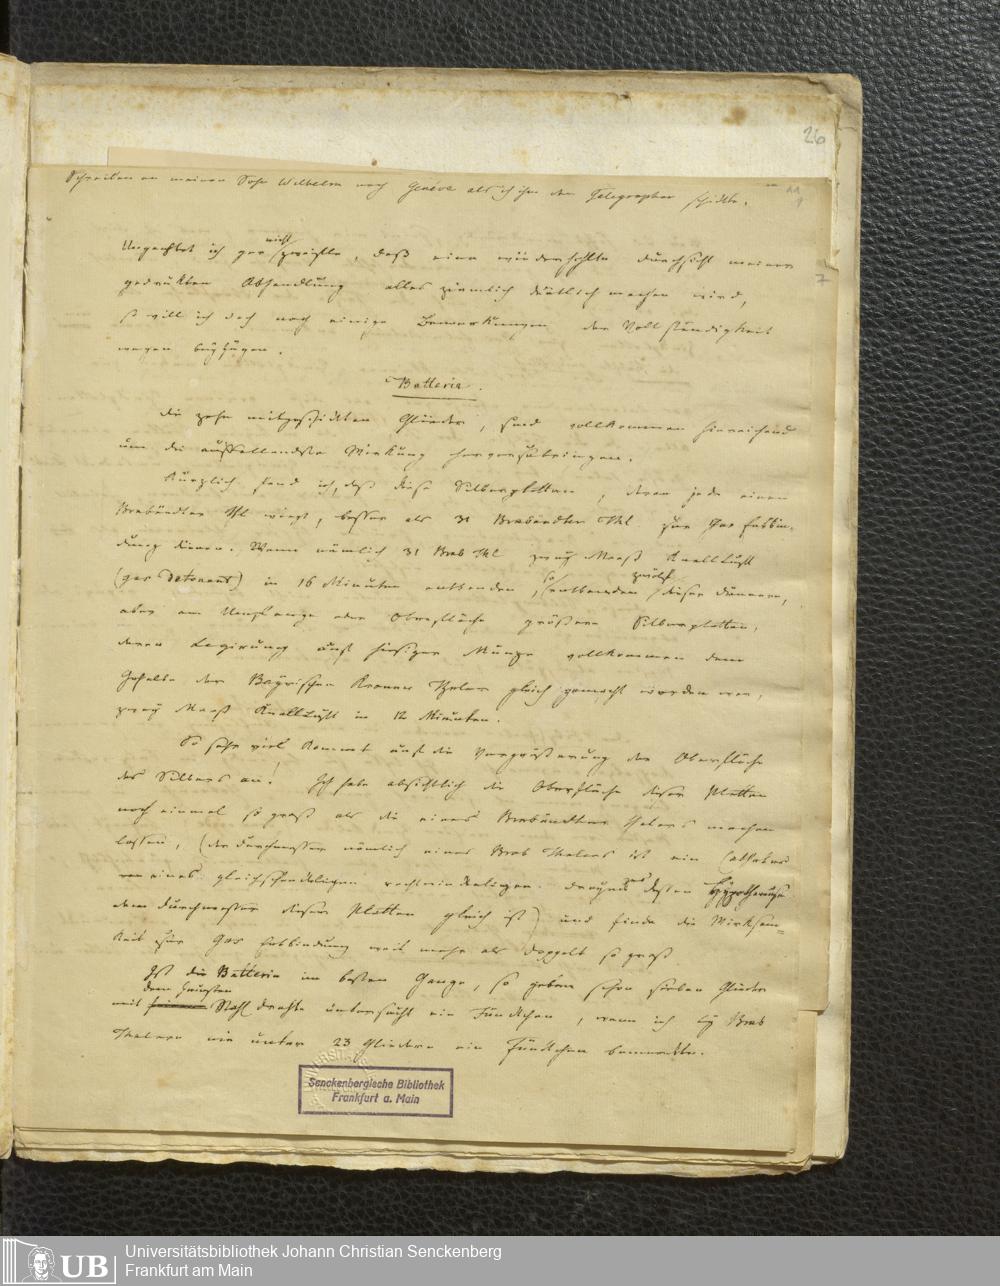 26
Schreiben an meinen Sohn Wilhelm nach Genève als ich ihm den Telegraphen schickte.
11
1
7
Ungeachtet ich gar nicht zweifle, daß eine wiederhohlte Durchsicht meiner
gedruckten Abhandlung alles ziemlich deutlich machen wird,
so will ich doch noch einige Bemerkungen der Vollständigkeit
wegen beyfügen.
Batterie.
Die zehn mitgeschickten Glieder, sind vollkommen hinreichend
um die auffallendste Wirkung hervorzubringen.
Kürzlich fand ich, daß diese Silberplatten, deren jede einen
Brabändter Thl wiegt, besser als 31 Brabändter Thl zur Gas Entbin-
dung dienen. Wenn nämlich 31 Brab Thl zwey Maaß Knallluft
(gas detonant) in 16 Minuten entbanden, so entbanden zwölf dieser dünneren,
aber am Umfange oder Oberfläche größern Silberplatten,
deren Legirung auf hiesiger Münze vollkommen dem
Gehalte der Bayrischen Kronen Thaler gleich gemacht worden war,
zwey Maaß Knallluft in 12 Minuten.
So sehr viel kommt auf die Vergrößerung der Oberfläche
des Silbers an! Ich habe absichtlich die Oberfläche dieser Platten
noch einmal so groß als die eines Brabändter Thalers machen
lassen, (der Durchmesser nämlich eines Brab Thalers ist ein Cathetus
eines gleichschenkeligen rechtwinkeligen dessen Hypothenuse
dem Durchmesser dieser Platten gleich ist) und finde die Wirksam=
keit zur Gas Entbindung weit mehr als doppelt so groß.
Ist die Batterie im besten Gange, so geben schon sieben Glieder
mit dem feinsten Stahl drahte untersucht ein Fünkchen, wenn ich bey Brab
Thalern nie unter 23 Gliedern ein Fünkchen bemerkte.
Senckenbergische Bibliothek
Frankfurt a. Main
UB
Universitätsbibliothek Johann Christian Senckenberg
Frankfurt am Main